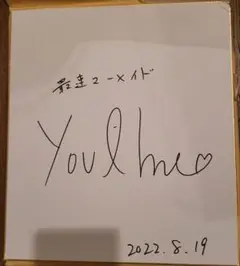 最速メーメイド
YoulMe♡
2022.8.19